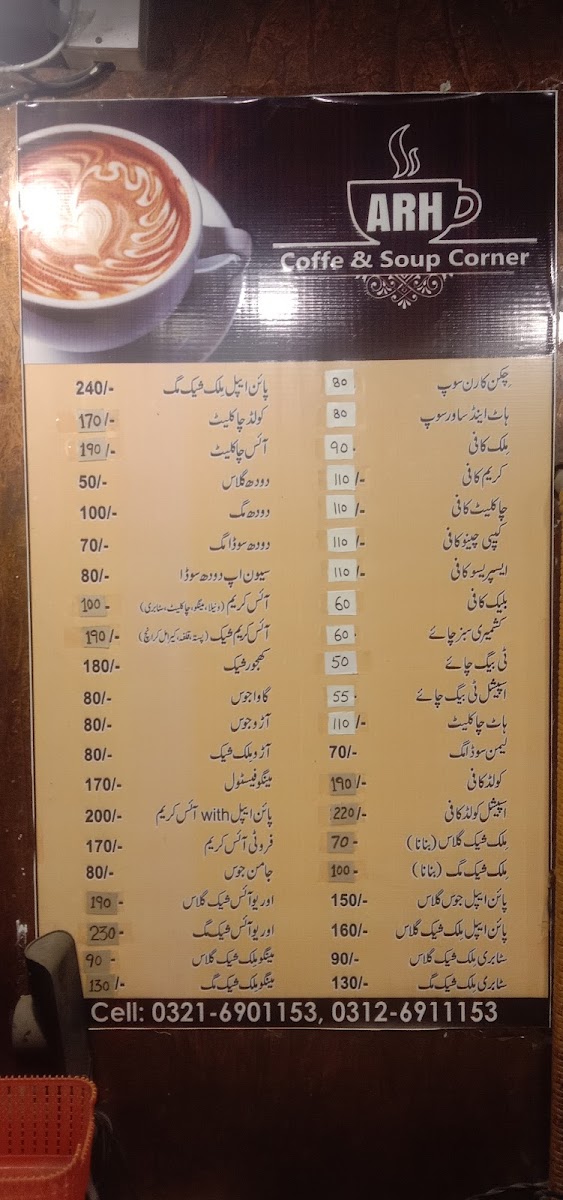 ARH
Coffe & Soup Corner
چکن کارن سوپ 80
ہاٹ اینڈ ساور سوپ 80
مِلک کافی 90
کریم کافی 110/-
چاکلیٹ کافی 110/-
کیپی چینو کافی 110/-
ایسپریسو کافی 110/-
بلیک کافی 60
کشمیری سبز چائے 60
ٹی بیگ چائے 50
اسپیشل ٹی بیگ چائے 55
ہاٹ چاکلیٹ 110/-
لیمن سوڈا مگ 70/-
کولڈ کافی 190/-
اسپیشل کولڈ کافی 220/-
مِلک شیک گلاس (بنانا) 70-
مِلک شیک مگ (بنانا) 100-
پائن ایپل جوس گلاس 150/-
پائن ایپل مِلک شیک گلاس 160/-
سٹابری مِلک شیک گلاس 90/-
سٹابری مِلک شیک مگ 130/-
پائن ایپل مِلک شیک مگ 240/-
کولڈ چاکلیٹ 170/-
آئس چاکلیٹ 190/-
دودھ گلاس 50/-
دودھ مگ 100/-
دودھ سوڈا مگ 70/-
سیون اپ دودھ سوڈا 80/-
آئس کریم (ونیلا، مینگو، چاکلیٹ، سٹابری) 100-
آئس کریم شیک (پستہ، قلفہ، کیرامل کرانچ) 190/-
کھجور شیک 180/-
گاوا جوس 80/-
آڑو جوس 80/-
آڑو مِلک شیک 80/-
مینگو فیسٹول 170/-
پائن ایپل with آئس کریم 200/-
فروٹی آئس کریم 170/-
جامن جوس 80/-
اوریو آئس شیک گلاس 190-
اوریو آئس شیک مگ 230-
مینگو مِلک شیک گلاس 90-
مینگو مِلک شیک مگ 130/-
Cell: 0321-6901153, 0312-6911153